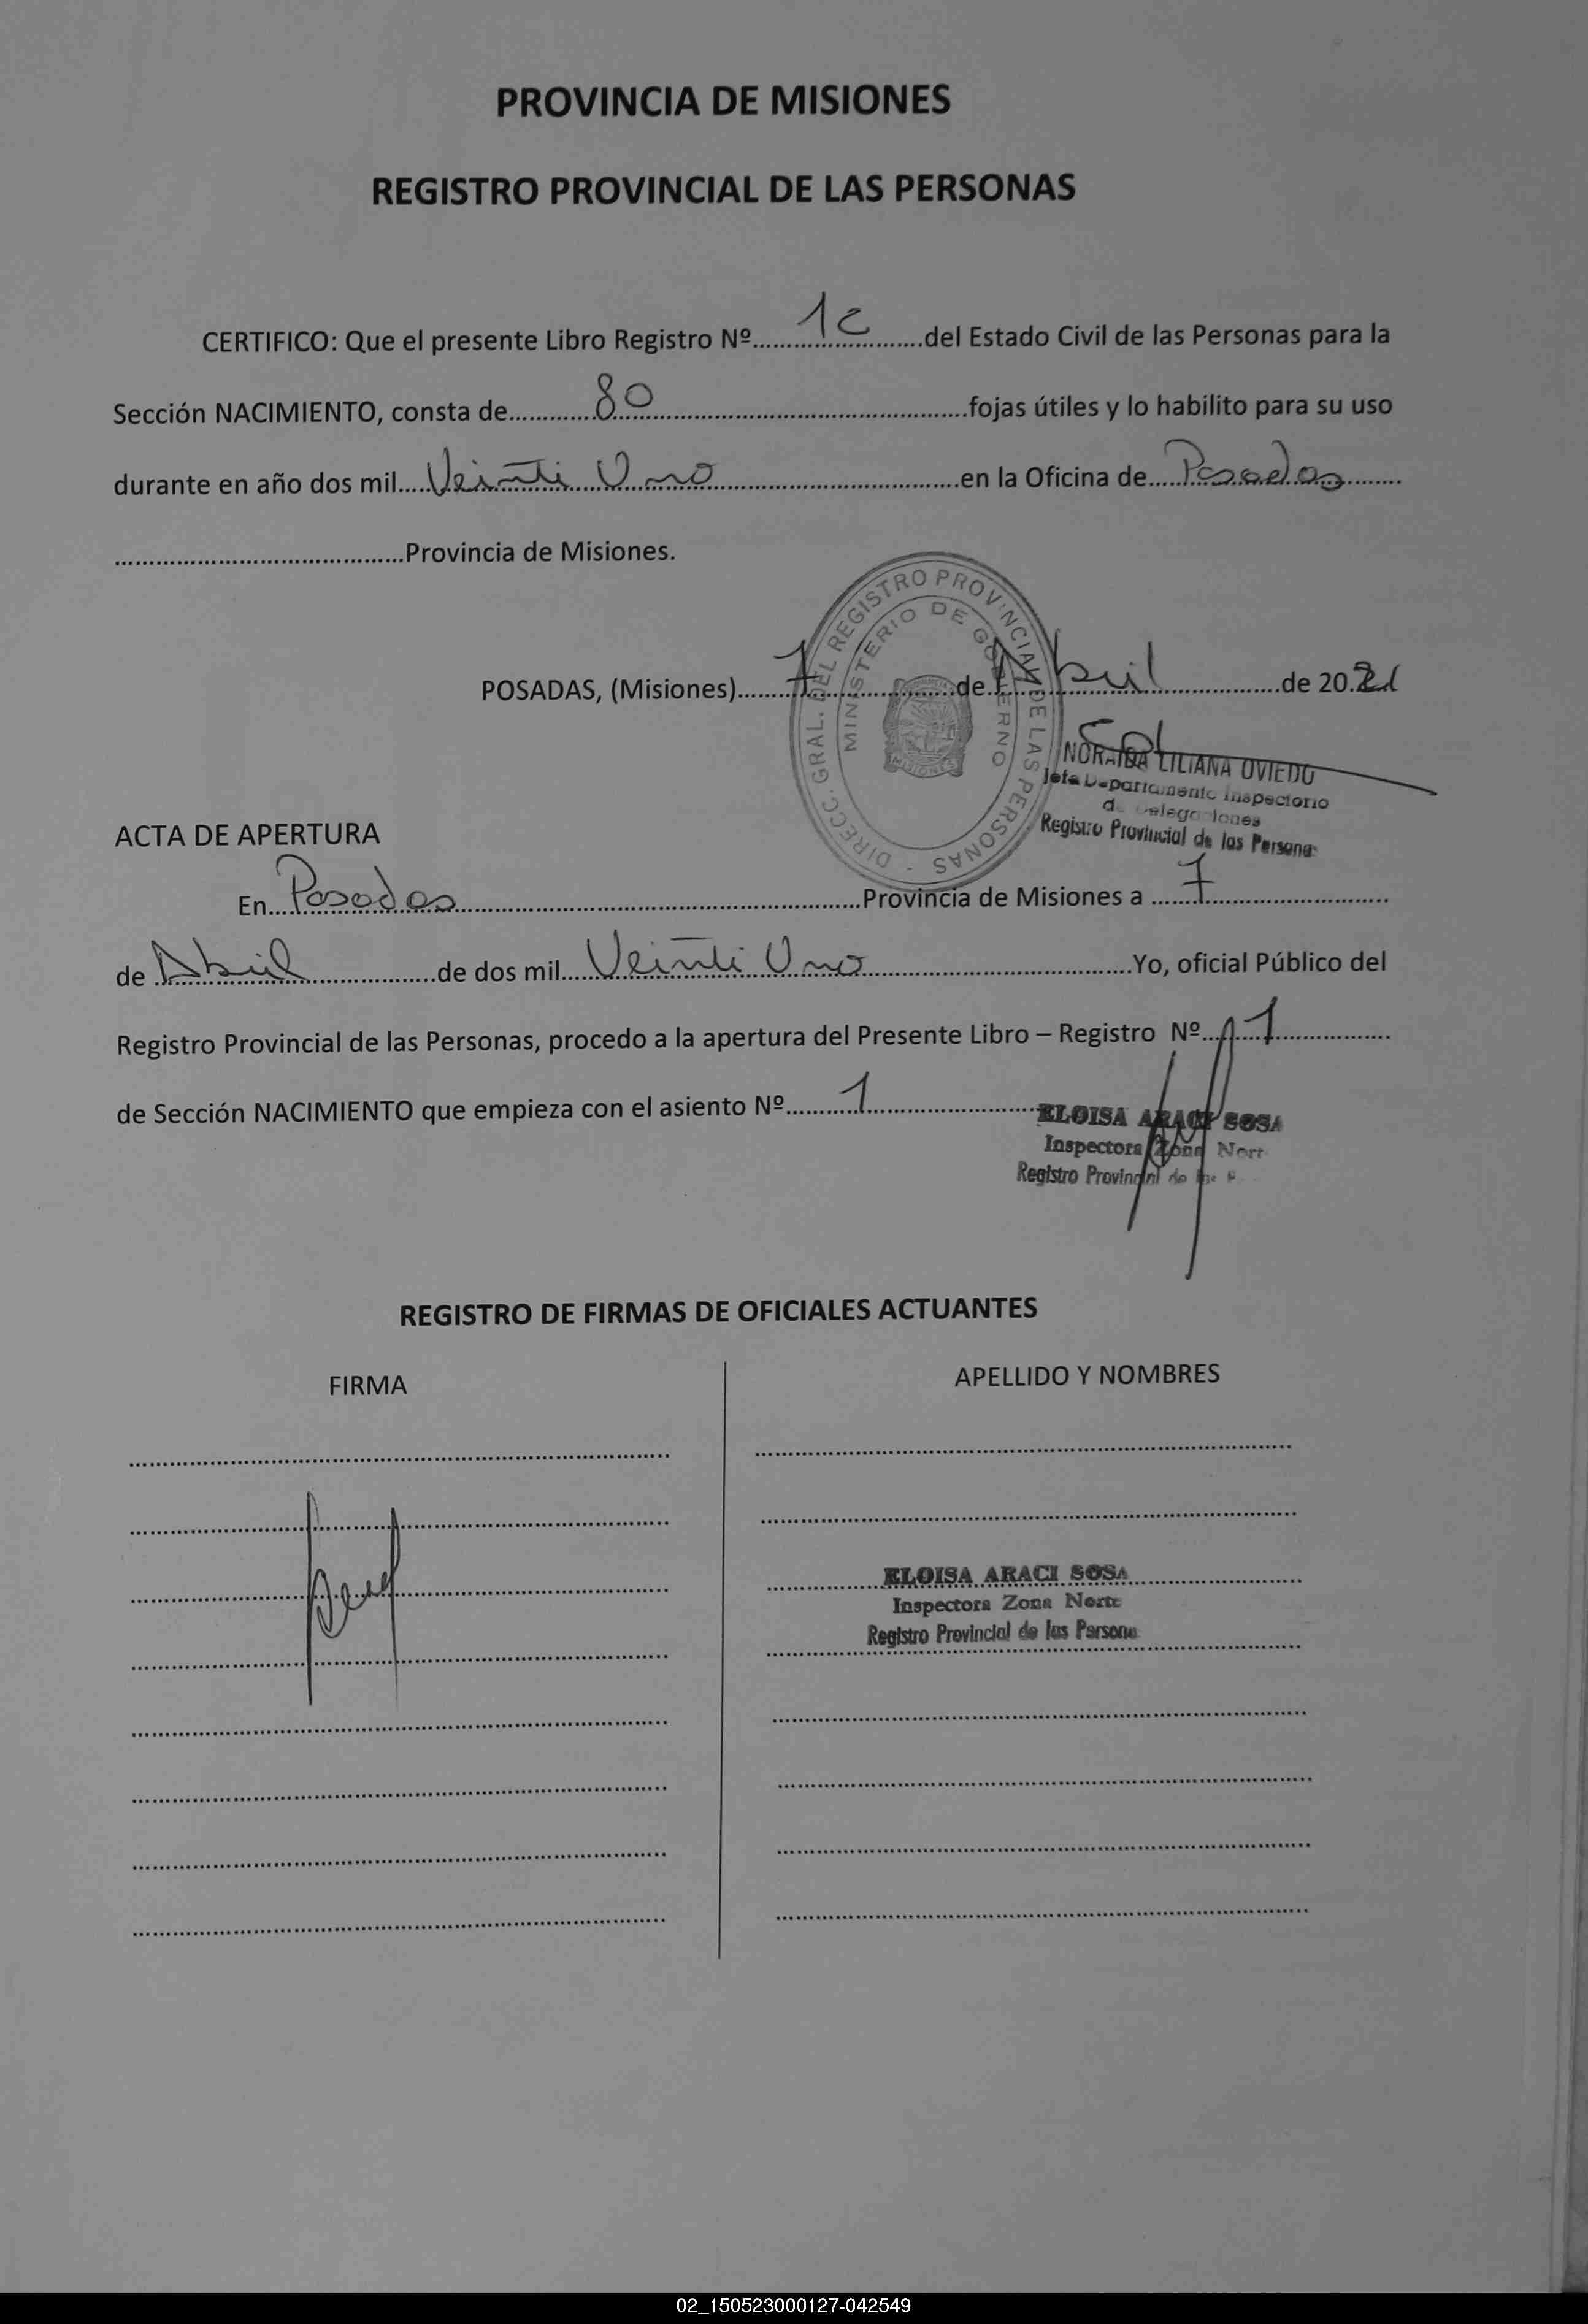 PROVINCIA DE MISIONES
REGISTRO PROVINCIAL DE LAS PERSONAS
CERTIFICO: Que el presente Libro Registro Nº............1c............del Estado Civil de las Personas para la
Sección NACIMIENTO, consta de............80............fojas útiles y lo habilito para su uso
durante en año dos mil.....Veinti Uno............en la Oficina de.....Posadas.........
............Provincia de Misiones.
DIRECC. GRAL. DEL REGISTRO PROVINCIAL DE LAS PERSONAS -
MINISTERIO DE GOBIERNO
MISIONES
POSADAS, (Misiones).........7............de.Abril............de 20.21
NORAIDA LILIANA OVIEDO
Jefa Departamento Inspectorio
de Delegaciones
Registro Provincial de las Persona
ACTA DE APERTURA
En....Posadas............Provincia de Misiones a .......7............
de Abril............de dos mil....Veinti Uno............Yo, oficial Público del
Registro Provincial de las Personas, procedo a la apertura del Presente Libro – Registro Nº.....1............
de Sección NACIMIENTO que empieza con el asiento Nº.........1............
ELOISA ARACI SOSA
Inspectora Zona Nort
Registro Provincial de
REGISTRO DE FIRMAS DE OFICIALES ACTUANTES
FIRMA
APELLIDO Y NOMBRES
ELOISA ARACI SOSA
Inspectora Zona Norte
Registro Provincial de las Persona
02_150523000127-042549